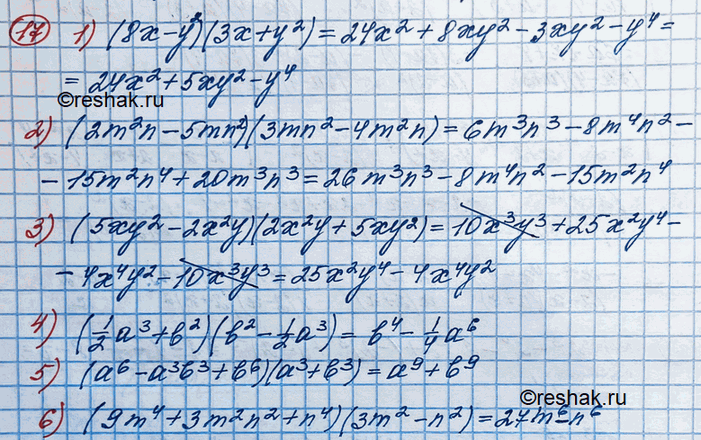 17 1) (8x-y²)(3x+y²) = 24x² + 8xy² - 3xy² - y⁴ =
= 24x² + 5xy² - y⁴
©reshak.ru
2) (2m²n - 5mn²)(3mn² - 4m²n) = 6m³n³ - 8m⁴n² -
- 15m²n⁴ + 20m³n³ = 26m³n³ - 8m⁴n² - 15m²n⁴
3) (5xy² - 2x²y)(2x²y + 5xy²) = 10x³y³ + 25x²y⁴ -
- 4x⁴y² - 10x³y³ = 25x²y⁴ - 4x⁴y²
4) (½a³ + b²)(b² - ½a³) = b⁴ - ¼a⁶
5) (a⁶ - a³b³ + b⁶)(a³ + b³) = a⁹ + b⁹
©reshak.ru
6) (9m⁴ + 3m²n² + n⁴)(3m² - n²) = 27m⁶ - n⁶